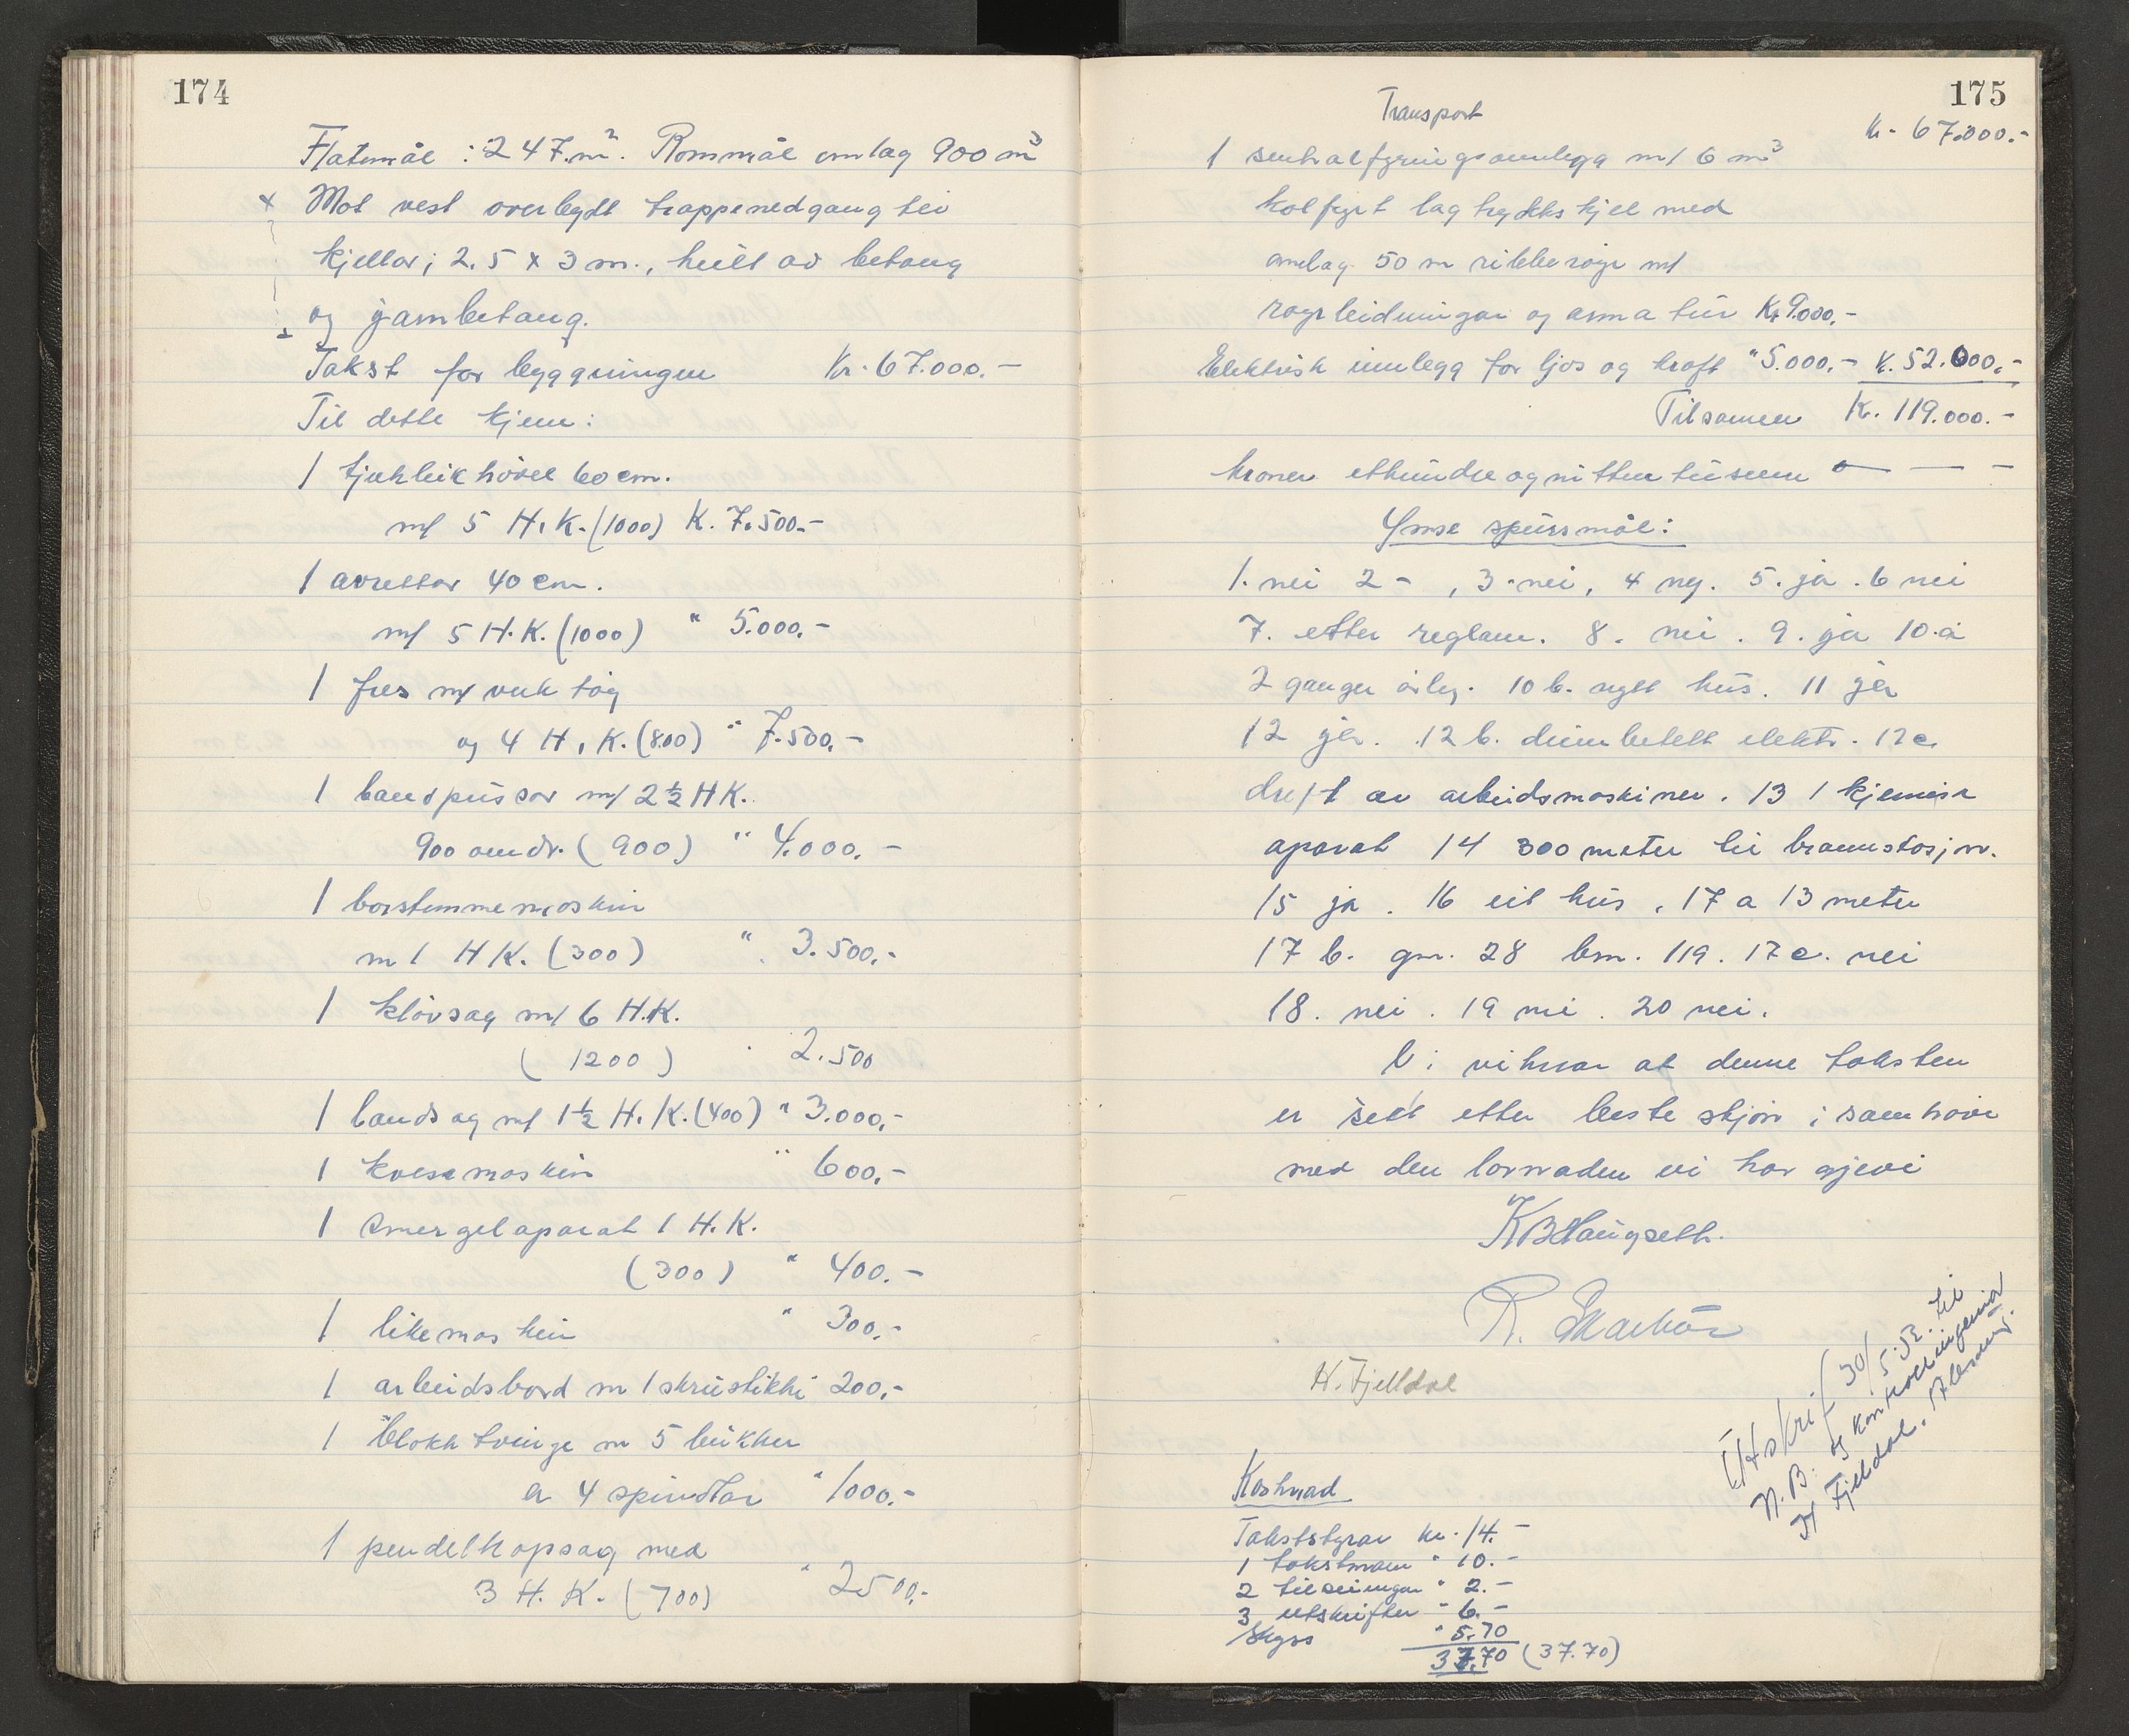 174
Flatemål : 247.m². Rommål omlag 900 m³
x Mot vest overbygdt trappenedgang til
kjellar; 2.5 x 3 m., heilt av betong
og jarnbetong.
Takst for bygningen Kr. 67.000.-
Til dette kjem:
1 tjukleikhøvel 60 cm.
m/ 5 H.K. (1000) K. 7.500.-
1 avrettar 40 cm.
m/ 5 H.K. (1000) " 5.000.-
1 fres m/ verktøy
og 4 H.K. (800) " 7.500.-
1 bandpussar m/ 2½ HK.
900 omdr. (900) " 4.000.-
1 borstemmemaskin
m 1 HK. (300) " 3.500.-
1 kløvsag m/ 6 H.K.
(1200) " 2.500
1 bandsag m/ 1½ H.K. (400) " 3.000.-
1 kvessmaskin " 600.-
1 smergelaparat 1 H.K.
(300) " 400.-
1 likemaskin " 300.-
1 arbeidsbord m 1 skrustikke 200.-
1 blokktvinge m 5 bukker
a 4 spindlar " 1000.-
1 pendelkapsag med
3 H.K. (700) " 2500.-
175
Transport Kr. 67.000.-
1 sentralfyringsanlegg m/ 6 m³
kolfyrt lagtrykkskjel med
omlag 50 m ribberøyr m/
røyrleidningar og arma tur Kr 9.000.-
Elektrisk innlegg for ljos og kraft " 5.000.- K. 52.000.-
Tilsamen K. 119.000.-
kroner etthundre og nitten tusen
Ymse spursmål:
1. nei 2 - , 3. nei, 4 ny. 5. ja . 6 nei
7. etter reglem. 8. nei . 9. ja 10.a
2 ganger årleg. 10 b. nytt hus. 11 ja
12 ja. 12 b. elektr. 12c.
drift av arbeidsmaskiner. 13 1 kjemisk
aparat 14 300 meter til brannstasjon.
15 ja . 16 eit hus . 17 a 13 meter
17 b. gnr. 28 bnr. 119. 17c. nei
18. nei . 19 nei . 20 nei.
Vi vitnar at denne taksten
er sett etter beste skjøn i samhøve
med den lovnaden vi har gjevi
KB Haugseth.
R. Skarbø
H. Fjelldal
Utskrift 30/5.52. til
N.B. og kontrollingeniør
H Fjelldal. Ålesund.
Kostnad
Takststyrar kr. 14.-
1 takstmann " 10.-
2 tilseiingar " 2.-
3 utskrifter " 6.-
Skyss " 5.70
37.70 (37.70)